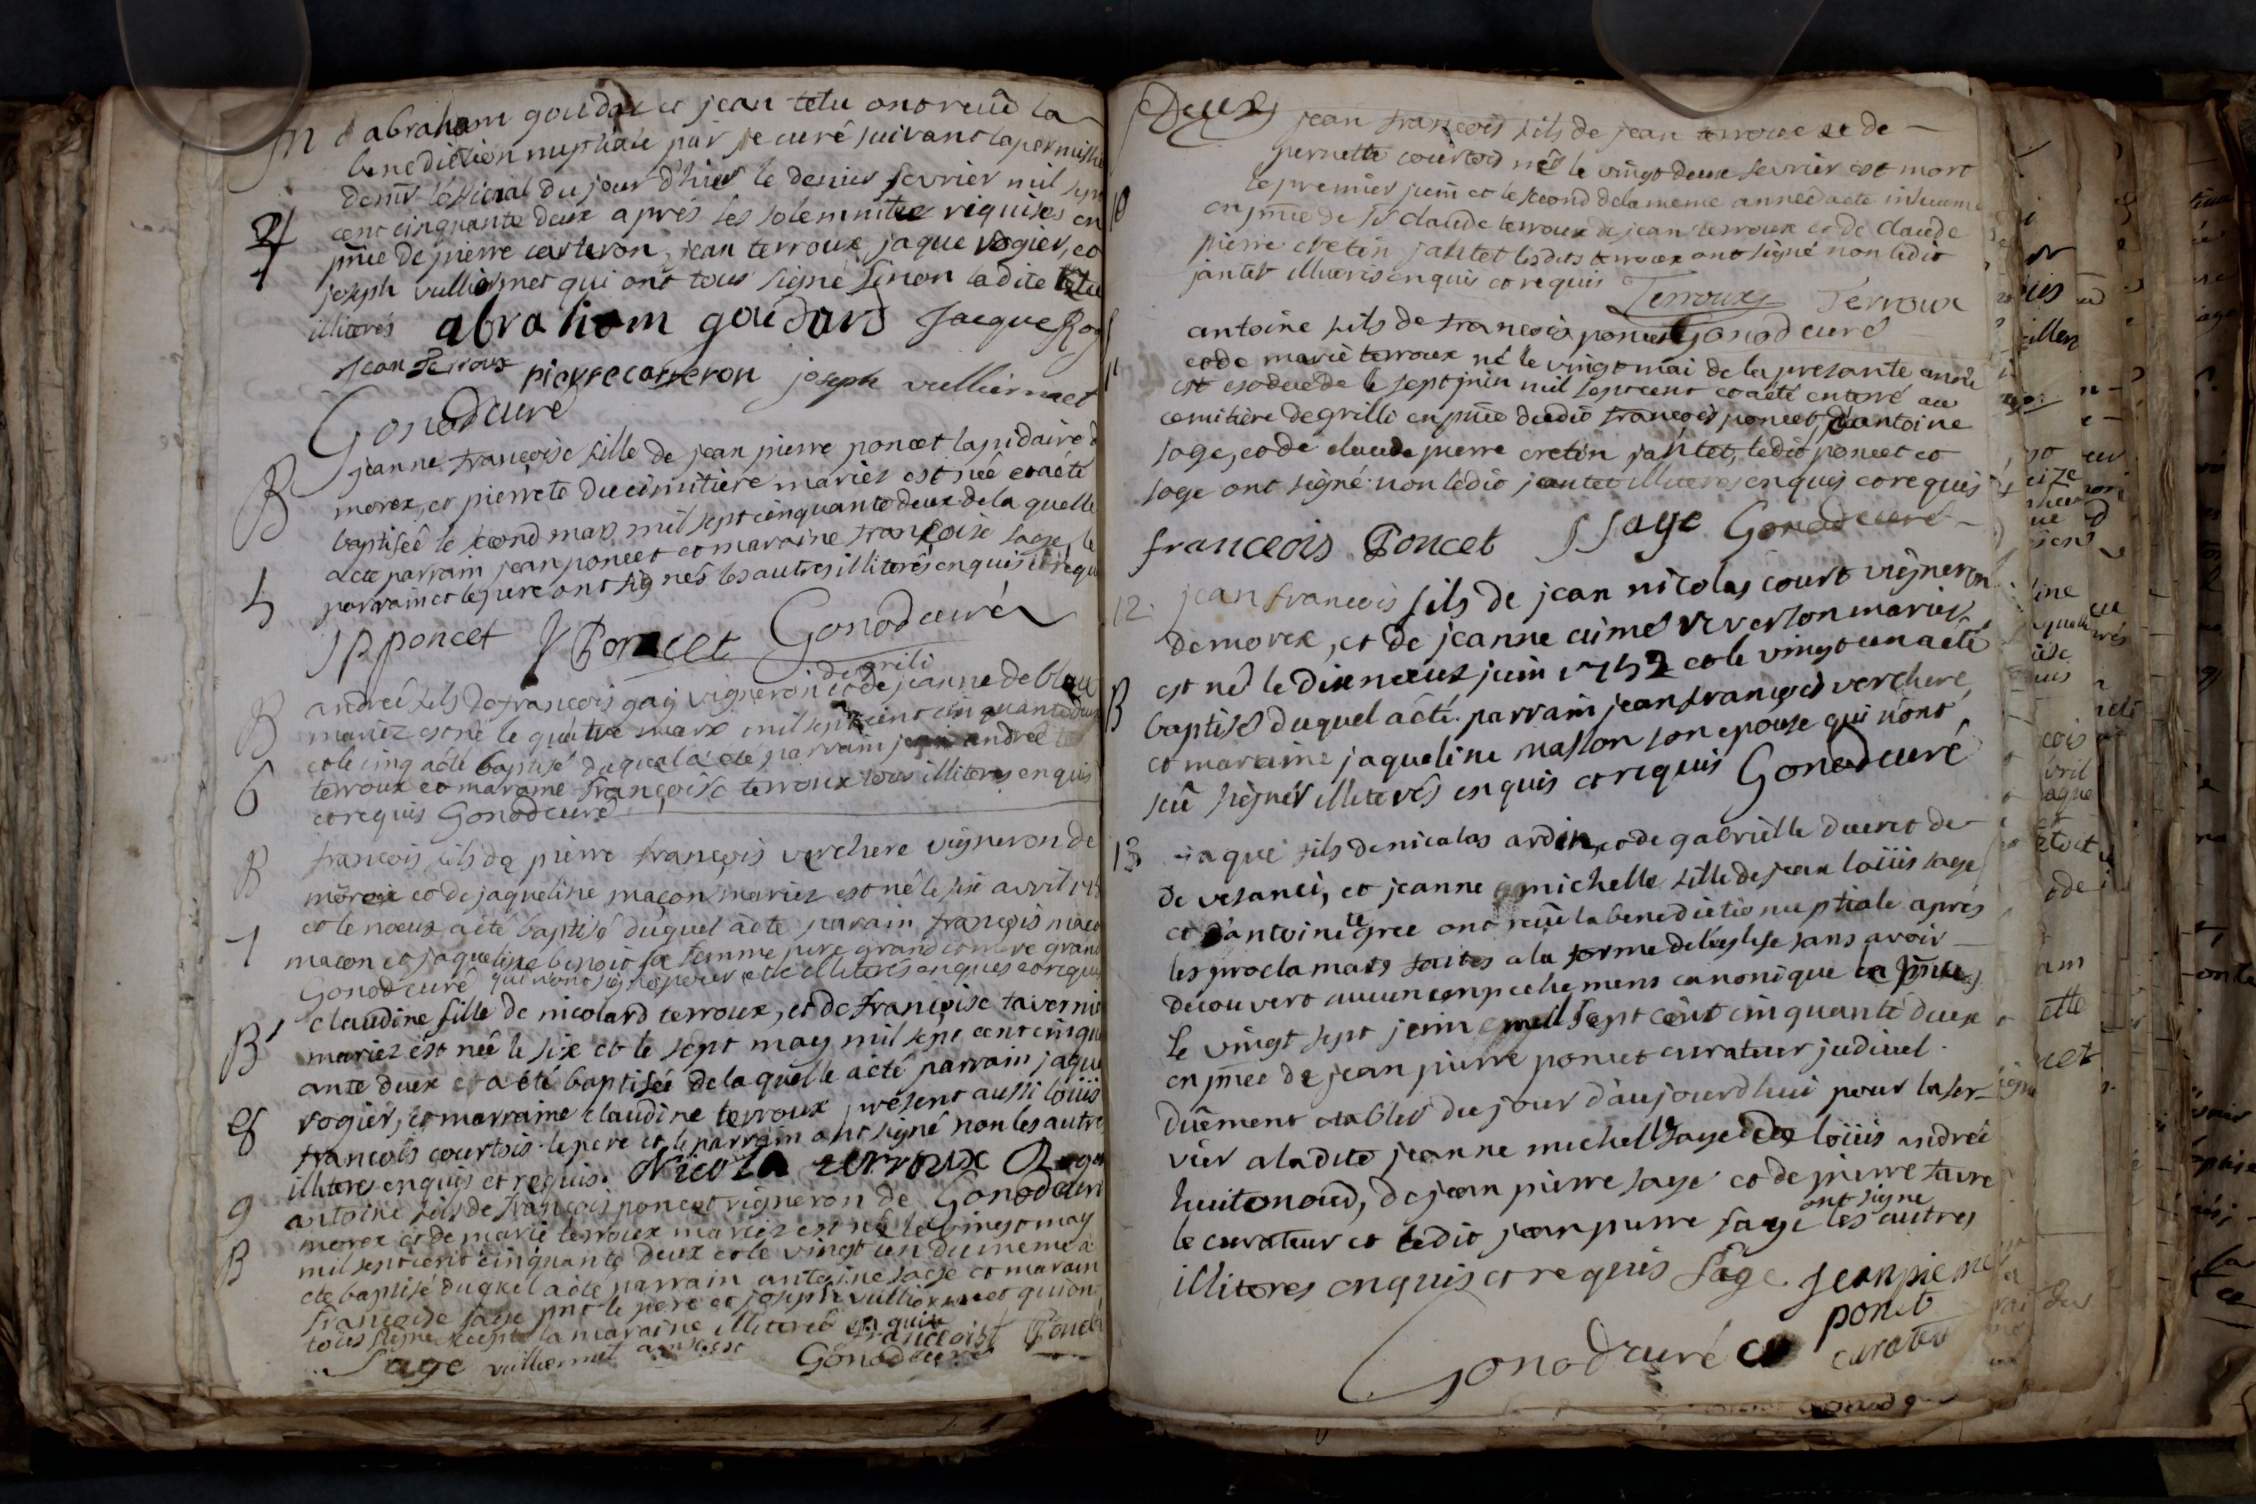 M d abraham goudar et jean tetu ont reçû la
benediction nuptiale par le curé suivant la permission
de mr l'official du jour d'hier le denier fevrier mil sept
cent cinquante deux aprés les solemnitez requises en
4 pnce de pierre carteron, jean terroux, jaque rogier, et
joseph vulliermet qui ont tous signé sinon ladite tetu
illiterés abraham goudard Jacque Rog
Jean Terroux pierre carteron joseph vulliermet
Gonod curé
B jeanne françoise fille de jean pierre poncet lapidaire d
morex, et pierrete du cimitiere mariez est née et a été
baptiseé le second mars mil sept cinquante deux de la quelle
a été parrain jean poncet et maraine françoise sage, le
5 parrain et le pere ont signés les autres illiterés enquis et requ
JP poncet J Poncet Gonod curé
de grili
B andreé fils de francois gay vigneron et de jeanne de
mariez est né le quatre mars mil sept cent cinquante deux
et le cinq a été baptisé duquel a été parrain jean andreé
6 terroux et maraine françoise terroux tous illiteres enquis
et requis Gonod curé
B francois fils de pierre françois verchere vigneron de
morex et de jaqueline maçon mariez est né le six avril 175
et le noeux a été baptisé duquel a été parain françois
7 macon et jaqueline benoit sa femme pere grand et mere grand
Gonod curé qui n'ont signé pour etre illiterés enquis et requis
B claudine fille de nicolard terroux, et de françoise tavernie
mariez est née le six et le sept may mil sept cent cinqu
ante deux et a été baptiseé de la quelle a été parrain jaque
8 rogier, et marraine claudine terroux present aussi loüis
francois courtois le pere et le parrain ont signé non les autres
illiteres enquis et requis. Nicola terroux Roger
9 antoine fils de françois poncet vigneron de Gonod curé
morex et de marie terroux mariez est né le vingt may
B mil sept cent cinquante deux et le vingt un du meme a
eté baptisé duquel a été parrain antoine sage et marain
francoise sage pnt le pere et joseph vulliermet qui ont
tous signé excepté la maraine illiterée enquise
Sage vulliermet francois Poncet
Gonod curé
Deux jean françois fils de jean terroux et de
pernette courtois né le vingt deux fevrier est mort
10 le premier juin et le second de la meme anneé a eté inhumé
en pnce de Sr claude terroux de jean terroux et de claude
pierre cretin jantet lesdits terroux ont signé non ledit
jantet illiteres enquis et requis Terroux Terroux
antoine fils de françois poncet Gonod curé
11 et de marie terroux né le vingt mai de la presante anneé
est et decedé le sept juin mil sept cent et a été enterré au
cemitière de grilli en pnce dudit françois poncet, d'antoine
sage, et de claude pierre cretin jantet, ledit poncet et
sage ont signé non ledit jantet illiteres enquis et requis
franceois Poncet J Sage Gonod curé
12. jean francois fils de jean nicolas court vigneron
de morex, et de jeanne aimeé reverson mariez,
est né le dix neeux juin 1752 et le vingt un a eté
B baptisé duquel a été parrain jean françois verchere,
et maraine jaqueline masson son epouse qui n'ont
sceû signér illiterés enquis et requis Gonod curé
13 jaque fils de nicolas ardin, et de gabrielle ducret de
de vesanci, et jeanne michelle fille de jean loüis sage
et d'antoinete gree ont reçu la benediction nuptiale aprés
les proclamats faites a la forme de l'eglise sans avoir
decouvert aucun enpechemens canonique
le vingt sept juin mil sept cent cinquante deux
en pnce de jean pierre poncet curateur judiciel
duëment etablie du jour d'aujourdhui pour la ser-
vir a ladite jeanne michelle sage de loüis andreé
huitonoud, de jean pierre sage et de pierre favre
le curateur et ledit jean pierre sage ont signé les autres
illiteres enquis et requis Sage Jean pierre
poncet
Gonod curé curateur